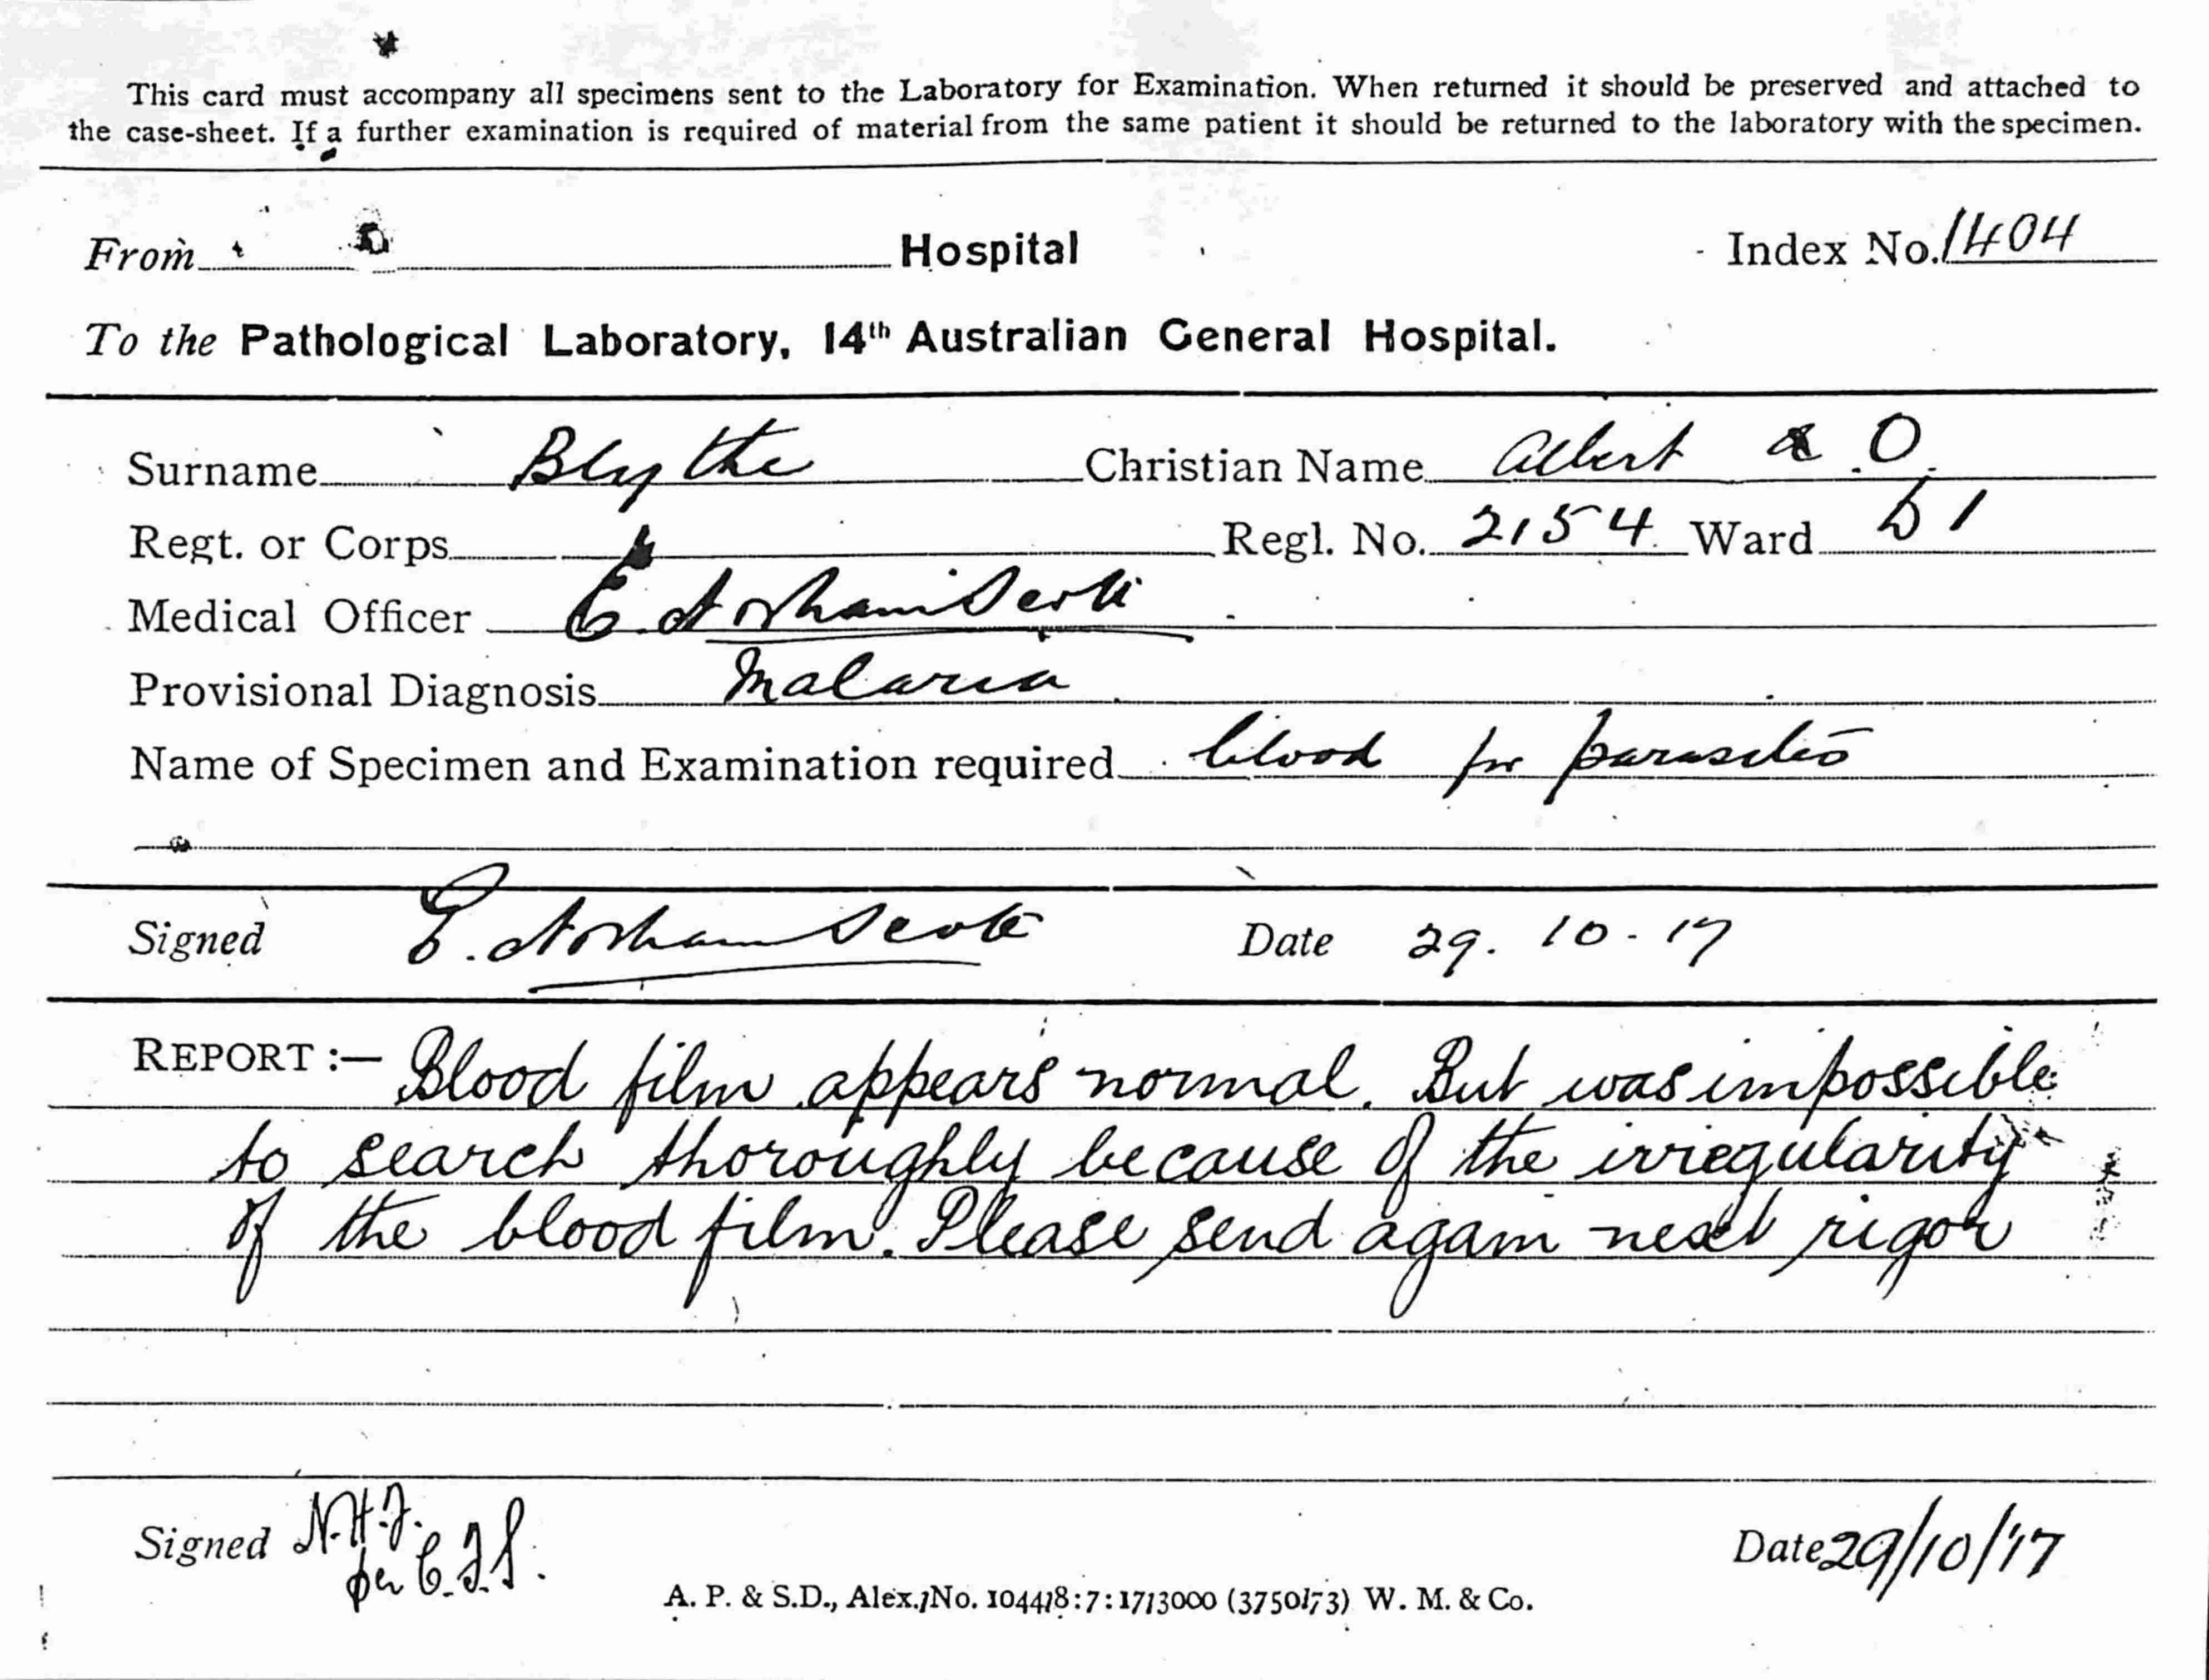 This card must accompany all specimens sent to the Laboratory for Examination. When returned it should be preserved and attached to
the case-sheet. If a further examination is required of material from the same patient it should be returned to the laboratory with the specimen.
From Hospital Index No. 1404
To the Pathological Laboratory, 14th Australian General Hospital.
Surname Blythe Christian Name Albert O.
Regt. or Corps Regl. No. 2154 Ward
Medical Officer E.
Provisional Diagnosis Malaria
Name of Specimen and Examination required blood for parasites
Signed E. Date 29.10.17
REPORT :— Blood film appears normal. But was impossible
to search thoroughly because of the irregularity
of the blood film. Please send again next rigor
Signed N.H.J. Date 29/10/17
per
A. P. & S.D., Alex./No. 104418:7:17/3000 (3750/73) W. M. & Co.